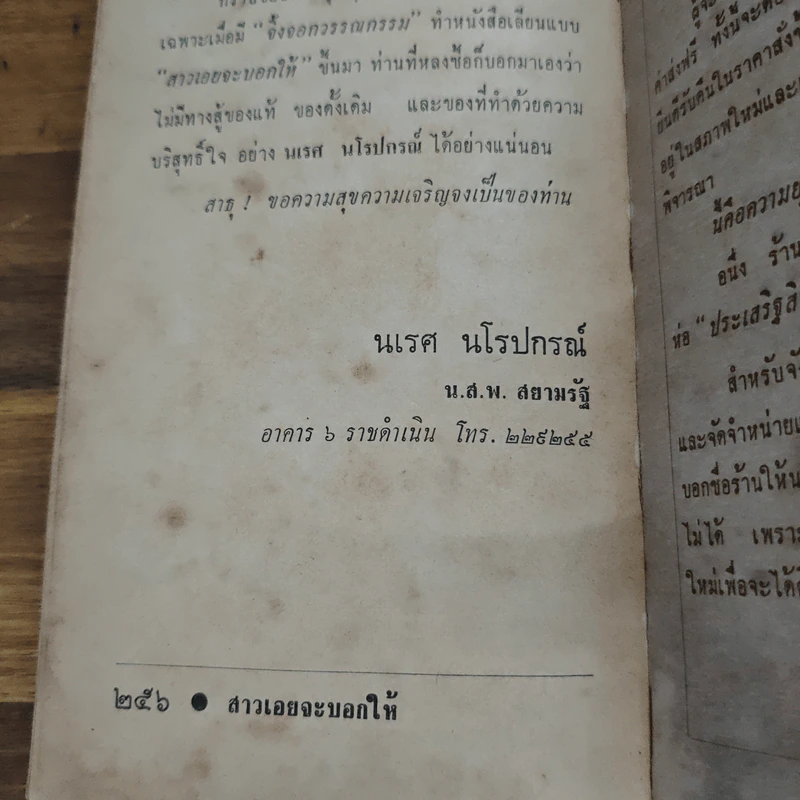 เฉพาะเมื่อมี "จิ้งจอกวรรณกรรม" ทำหนังสือเลียนแบบ
"สาวเอยจะบอกให้" ขึ้นมา ท่านที่หลงซื้อก็บอกมาเองว่า
ไม่มีทางสู้ของแท้ ของดั้งเดิม และของที่ทำด้วยความ
บริสุทธิ์ใจ อย่าง นเรศ นโรปกรณ์ ได้อย่างแน่นอน
สาธุ ! ขอความสุขความเจริญจงเป็นของท่าน
นเรศ นโรปกรณ์
น.ส.พ. สยามรัฐ
อาคาร ๖ ราชดำเนิน โทร. ๒๒๙๒๕๕
๒๕๖ ● สาวเอยจะบอกให้
ค่าส่งฟรี ทั้งนี้จะต้อง
ยินดีรับคืนในราคาสั่งซื้อ
อยู่ในสภาพใหม่และ
พิจารณา
นี้คือความ
อนึ่ง ร้าน
ห่อ "ประเสริฐ
สำหรับ
และจัดจำหน่าย
บอกชื่อร้านให้
ไม่ได้ เพราะ
ใหม่เพื่อจะได้